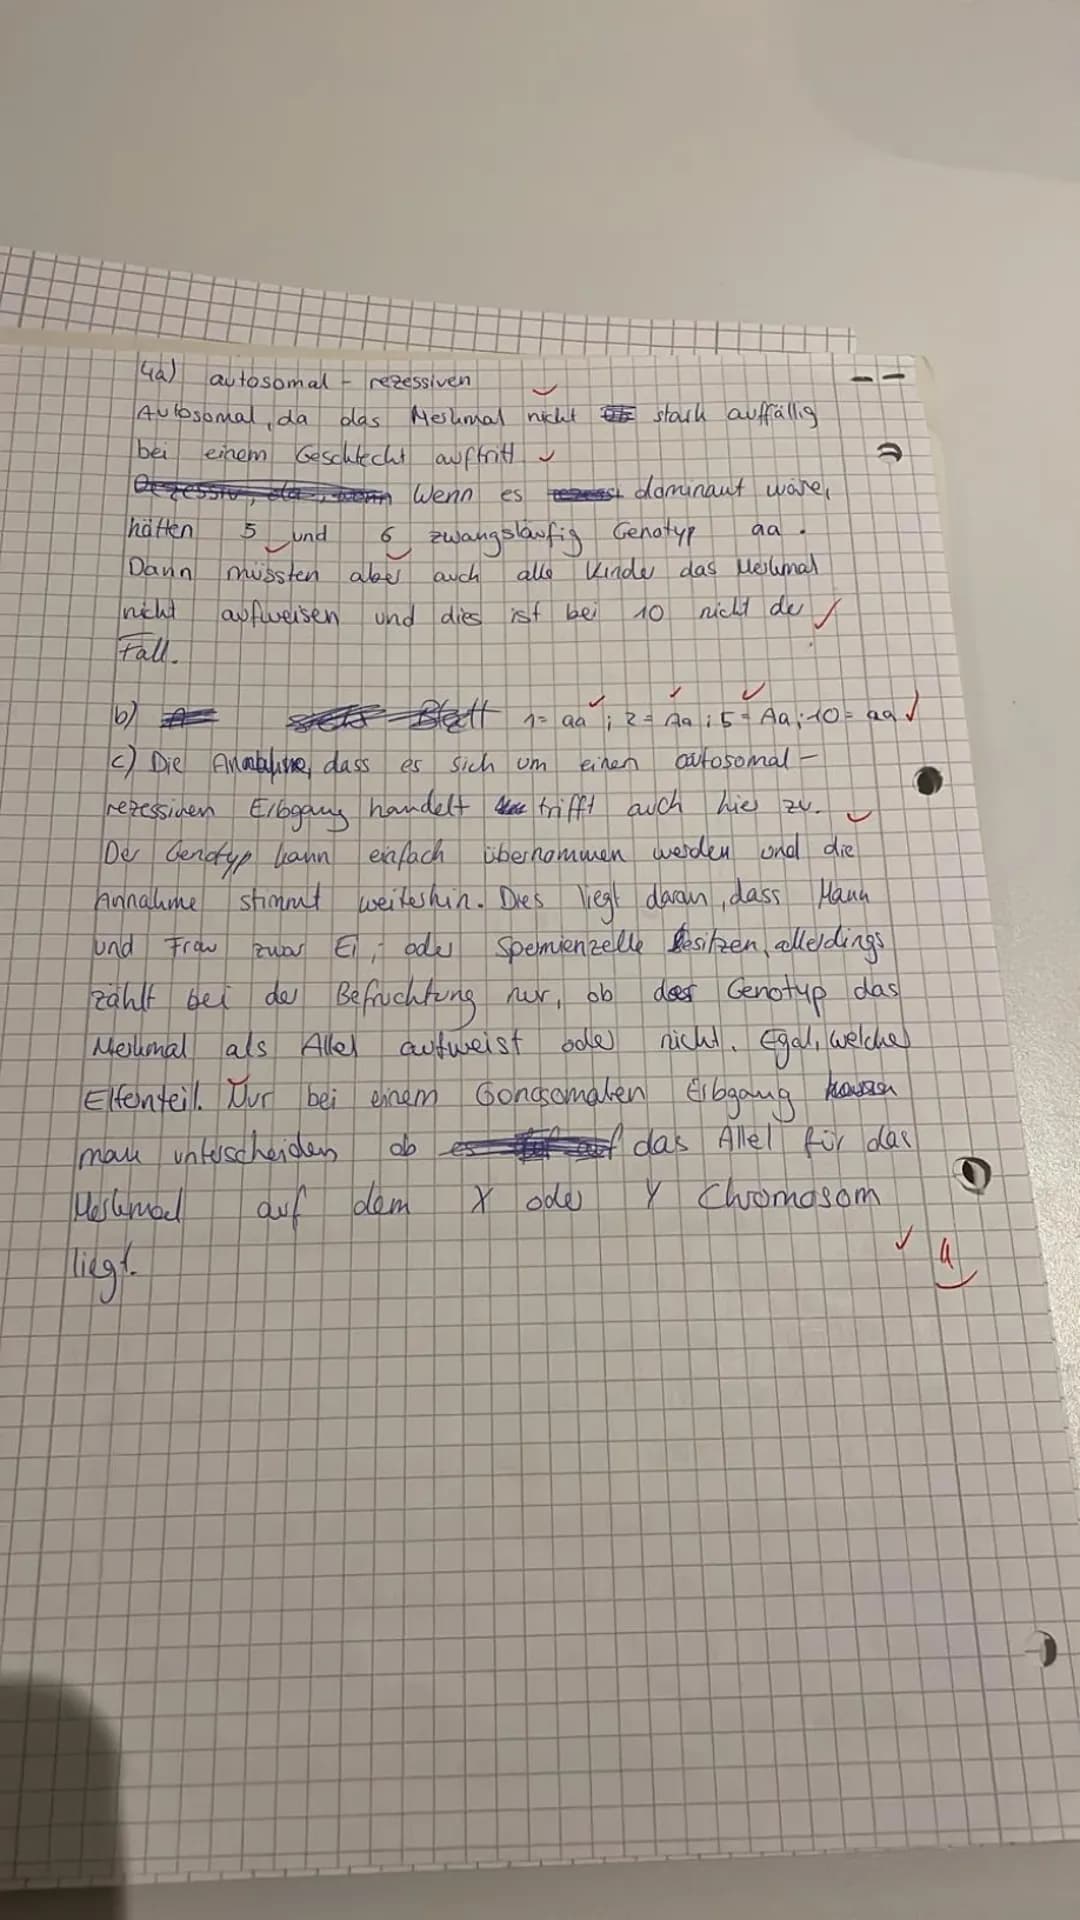 4a) autosomal - rezessiven
Autosomal, da das Merkmal nicht stark auffällig
bei einem Geschlecht auftritt
Rezessiv, da, wenn Wenn es dominant wäre,
hätten 5 und 6 zwangsläufig Genotyp aa.
Dann müssten aber auch alle Kinder das Merkmal
nicht aufweisen und dies ist bei 10 nicht der
Fall.
b) Blatt 1= aa ; 2= Aa ; 5= Aa ; 10= aa
c) Die Annahme, dass es sich um einen autosomal-
rezessiven Erbgang handelt trifft auch hier zu.
Der Genotyp kann einfach übernommen werden und die
Annahme stimmt weiterhin. Dies liegt daran, dass Mann
und Frau zwar Ei- oder Spermienzelle besitzen, allerdings
zählt bei der Befruchtung nur, ob der Genotyp das
Merkmal als Allel aufweist oder nicht. Egal, welcher
Elternteil. Nur bei einem Gonosomalen Erbgang
man unterscheiden ob das Allel für das
Merkmal auf dem X oder Y Chromosom
liegt.
4